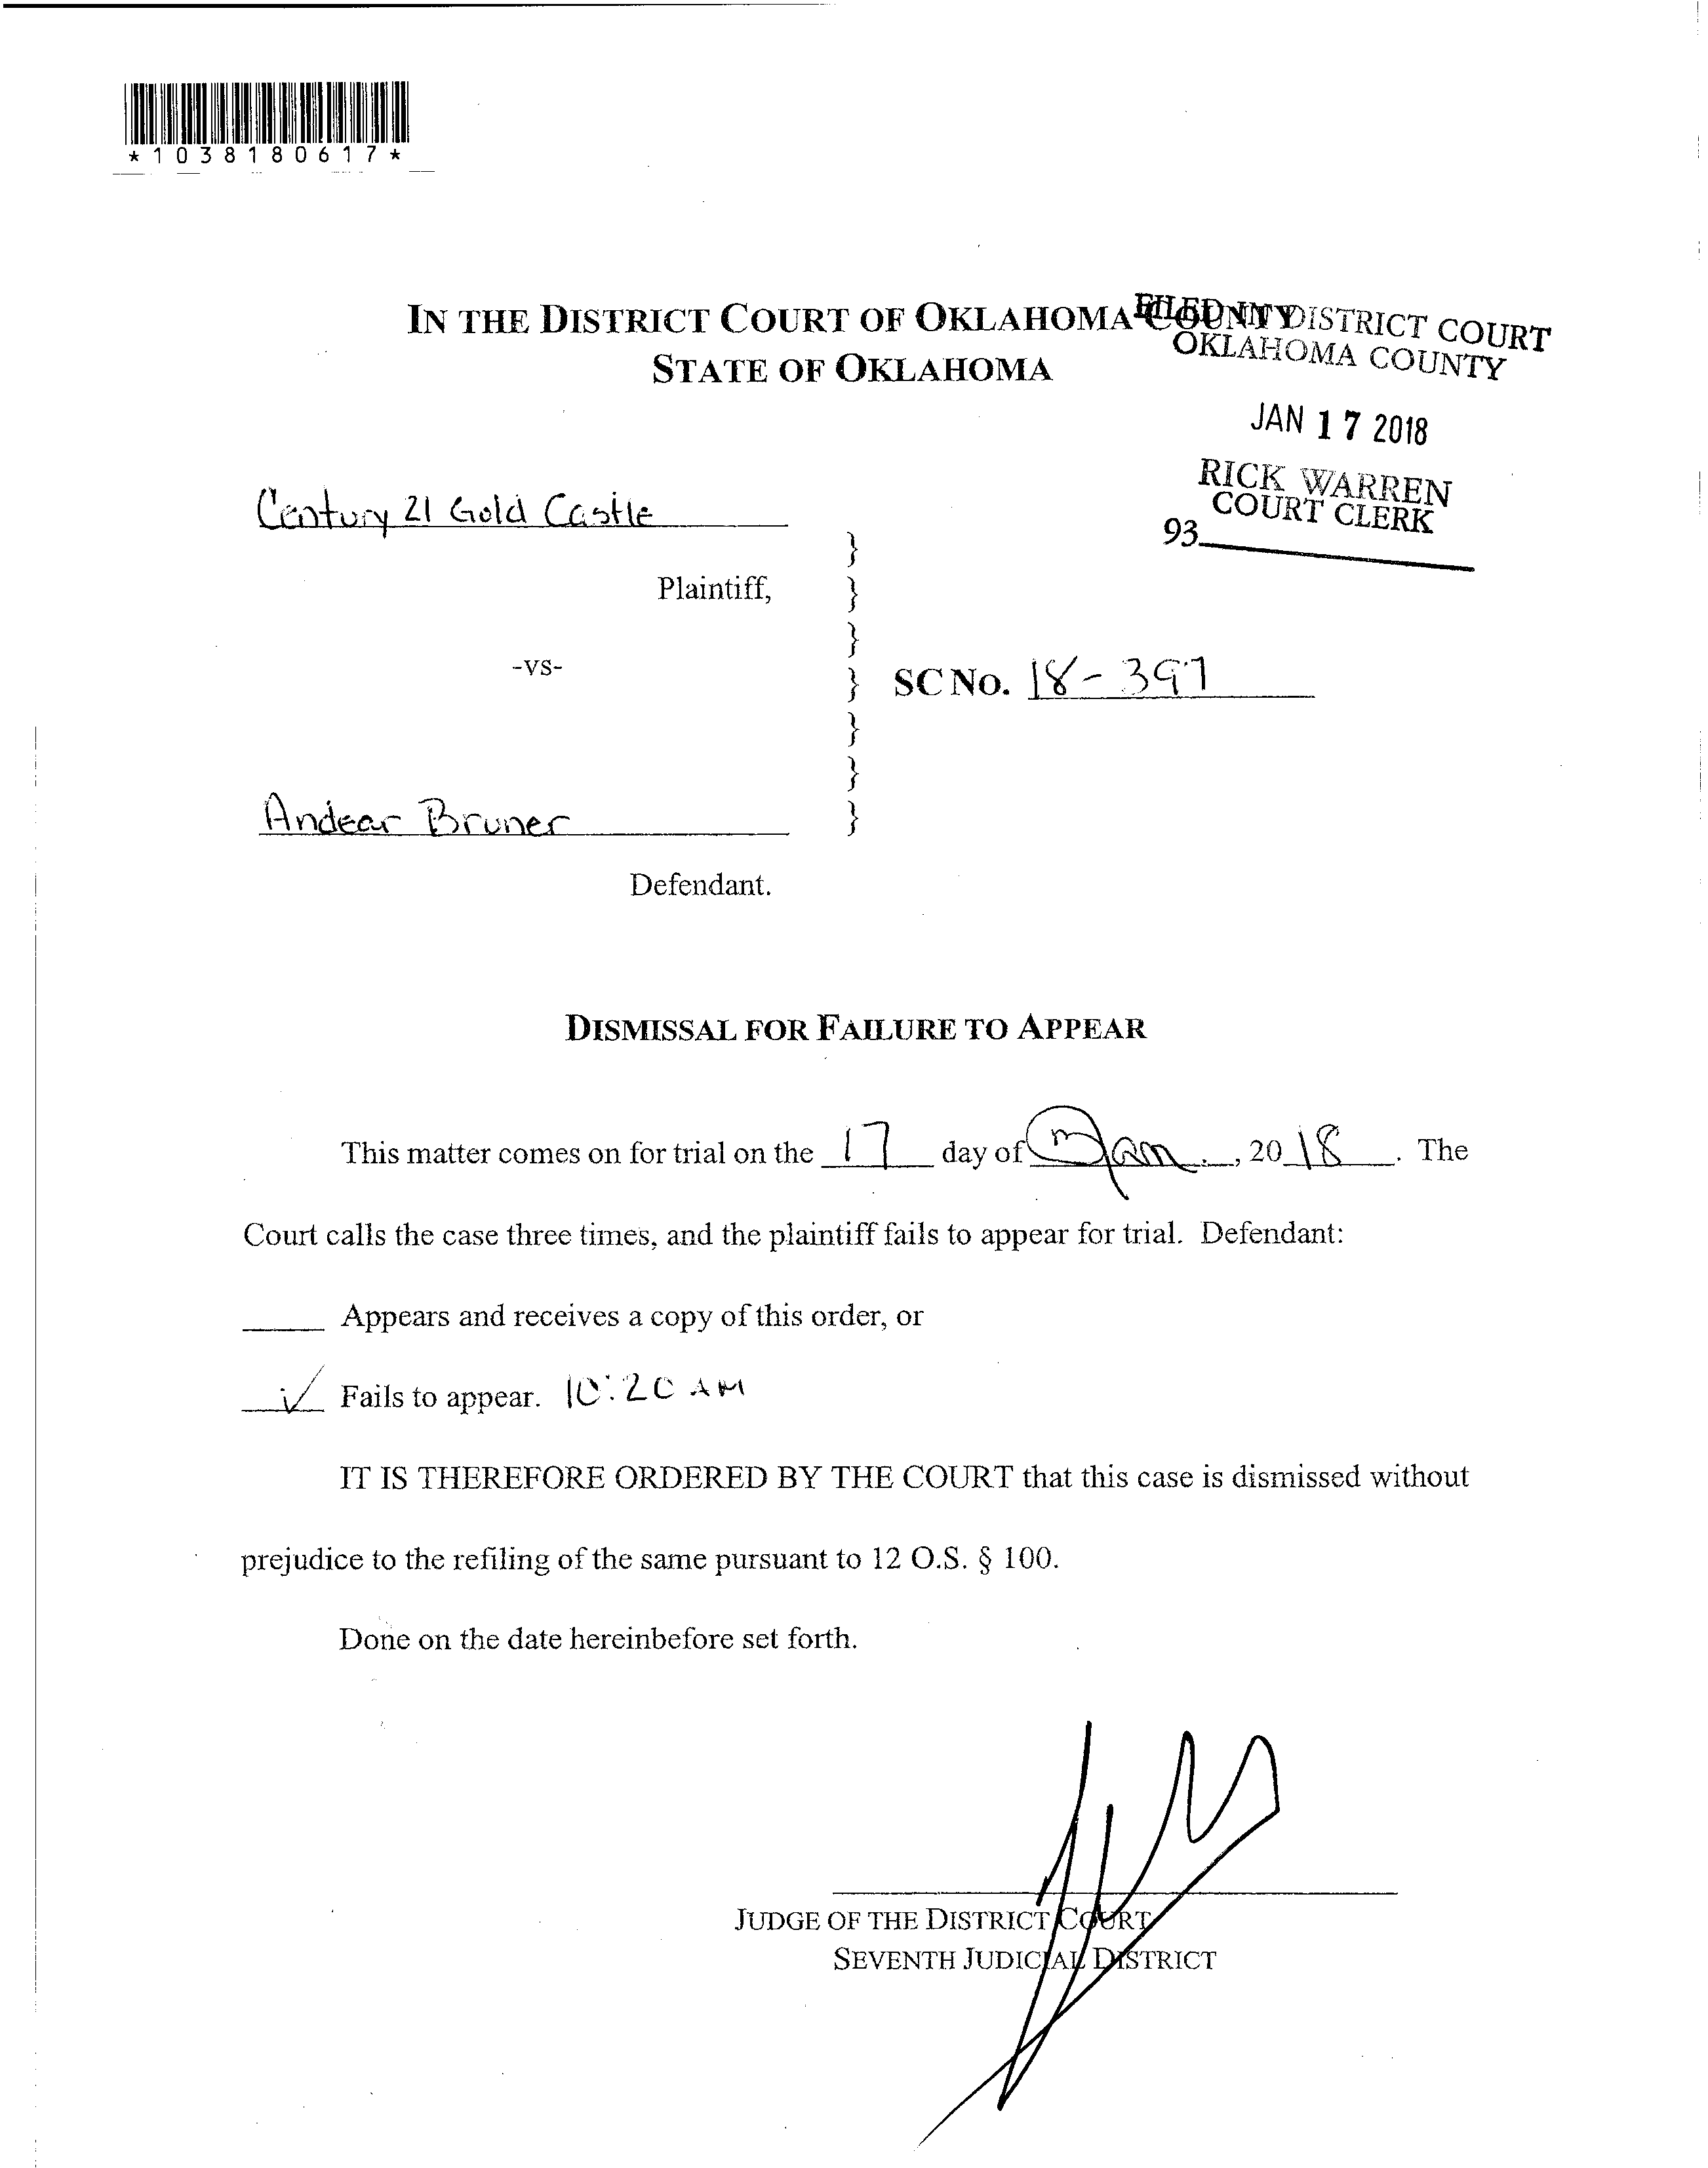 *1038180617*
IN THE DISTRICT COURT OF OKLAHOMA COUNTY
STATE OF OKLAHOMA
FILED IN DISTRICT COURT
OKLAHOMA COUNTY
JAN 17 2018
RICK WARREN
COURT CLERK
93
Century 21 Gold Castle
Plaintiff,
-vs-
SC No. 18-397
Andear Bruner
Defendant.
DISMISSAL FOR FAILURE TO APPEAR
This matter comes on for trial on the 17 day of Jan., 2018. The
Court calls the case three times, and the plaintiff fails to appear for trial. Defendant:
Appears and receives a copy of this order, or
✓ Fails to appear. 10:20 AM
IT IS THEREFORE ORDERED BY THE COURT that this case is dismissed without
prejudice to the refiling of the same pursuant to 12 O.S. § 100.
Done on the date hereinbefore set forth.
JUDGE OF THE DISTRICT COURT
SEVENTH JUDICIAL DISTRICT